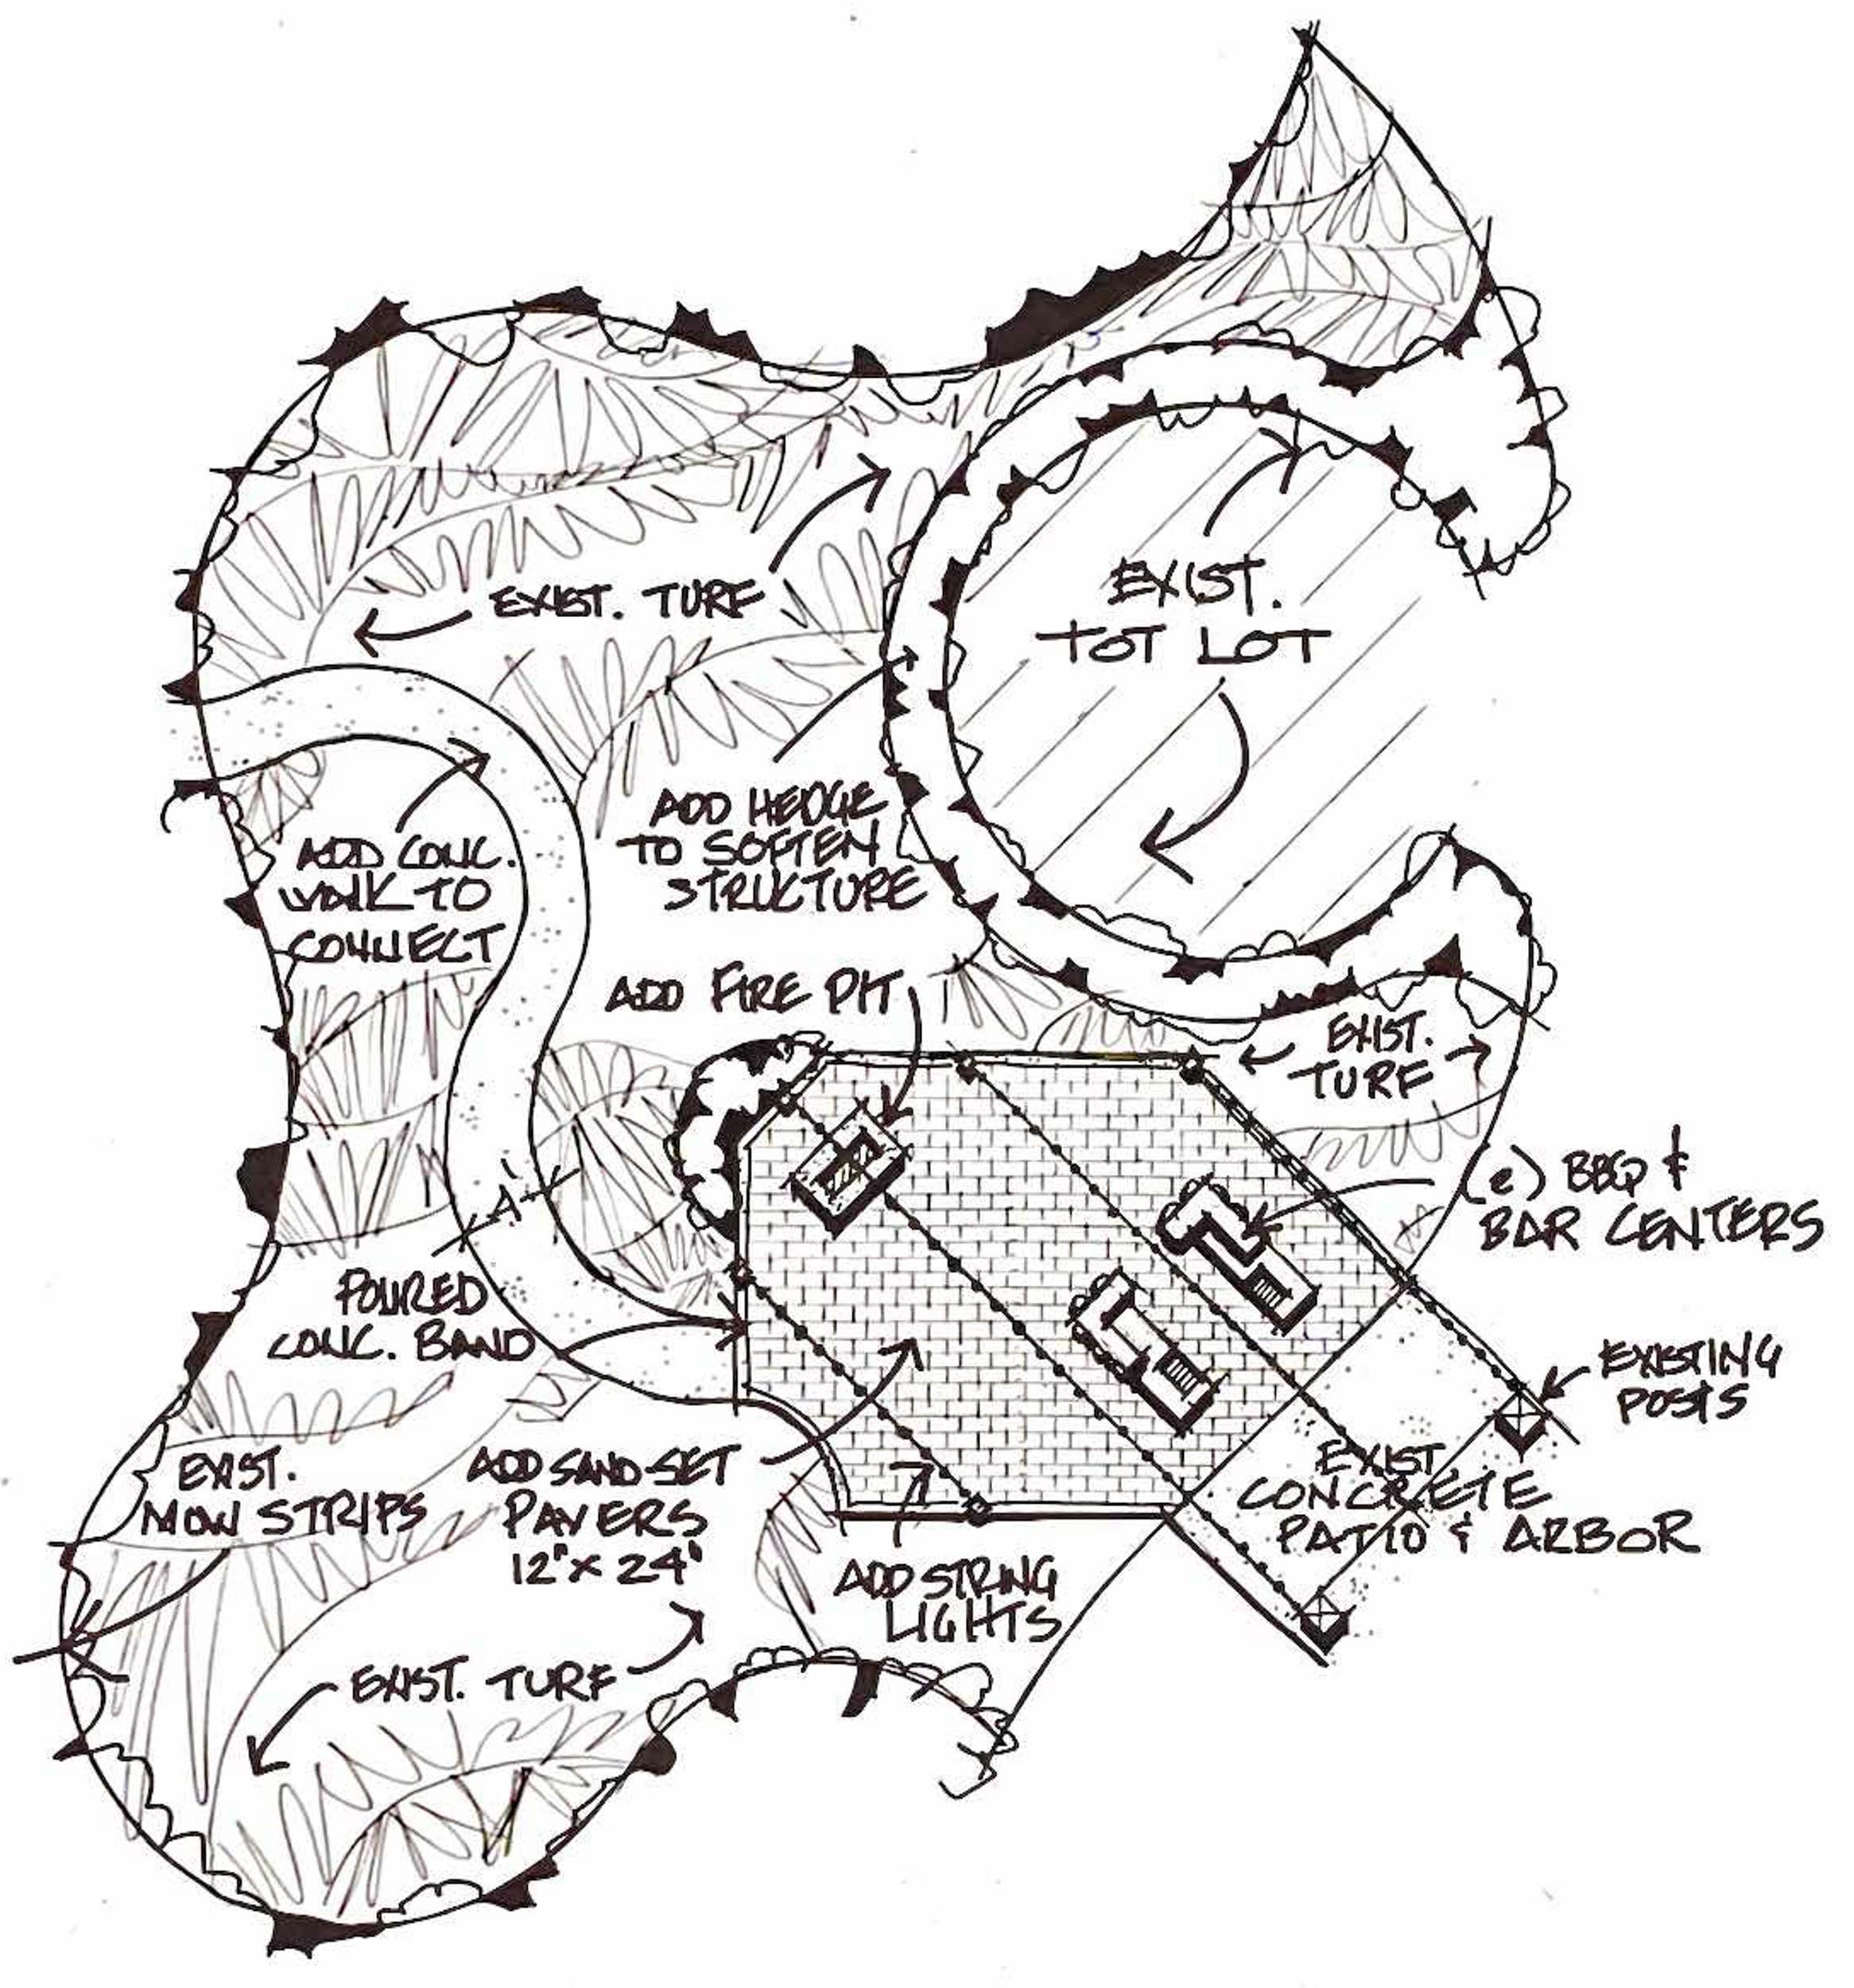 EXIST. TURF
EXIST.
TOT LOT
ADD HEDGE
TO SOFTEN
STRUCTURE
ADD CONC.
WALK TO
CONNECT
ADD FIRE PIT
EXIST.
TURF
(e) BBQ &
BAR CENTERS
4'
POURED
CONC. BAND
EXISTING
POSTS
EXIST.
MOW STRIPS
ADD SAND-SET
PAVERS
12"x 24"
EXIST
CONCRETE
PATIO & ARBOR
ADD STRING
LIGHTS
EXIST. TURF